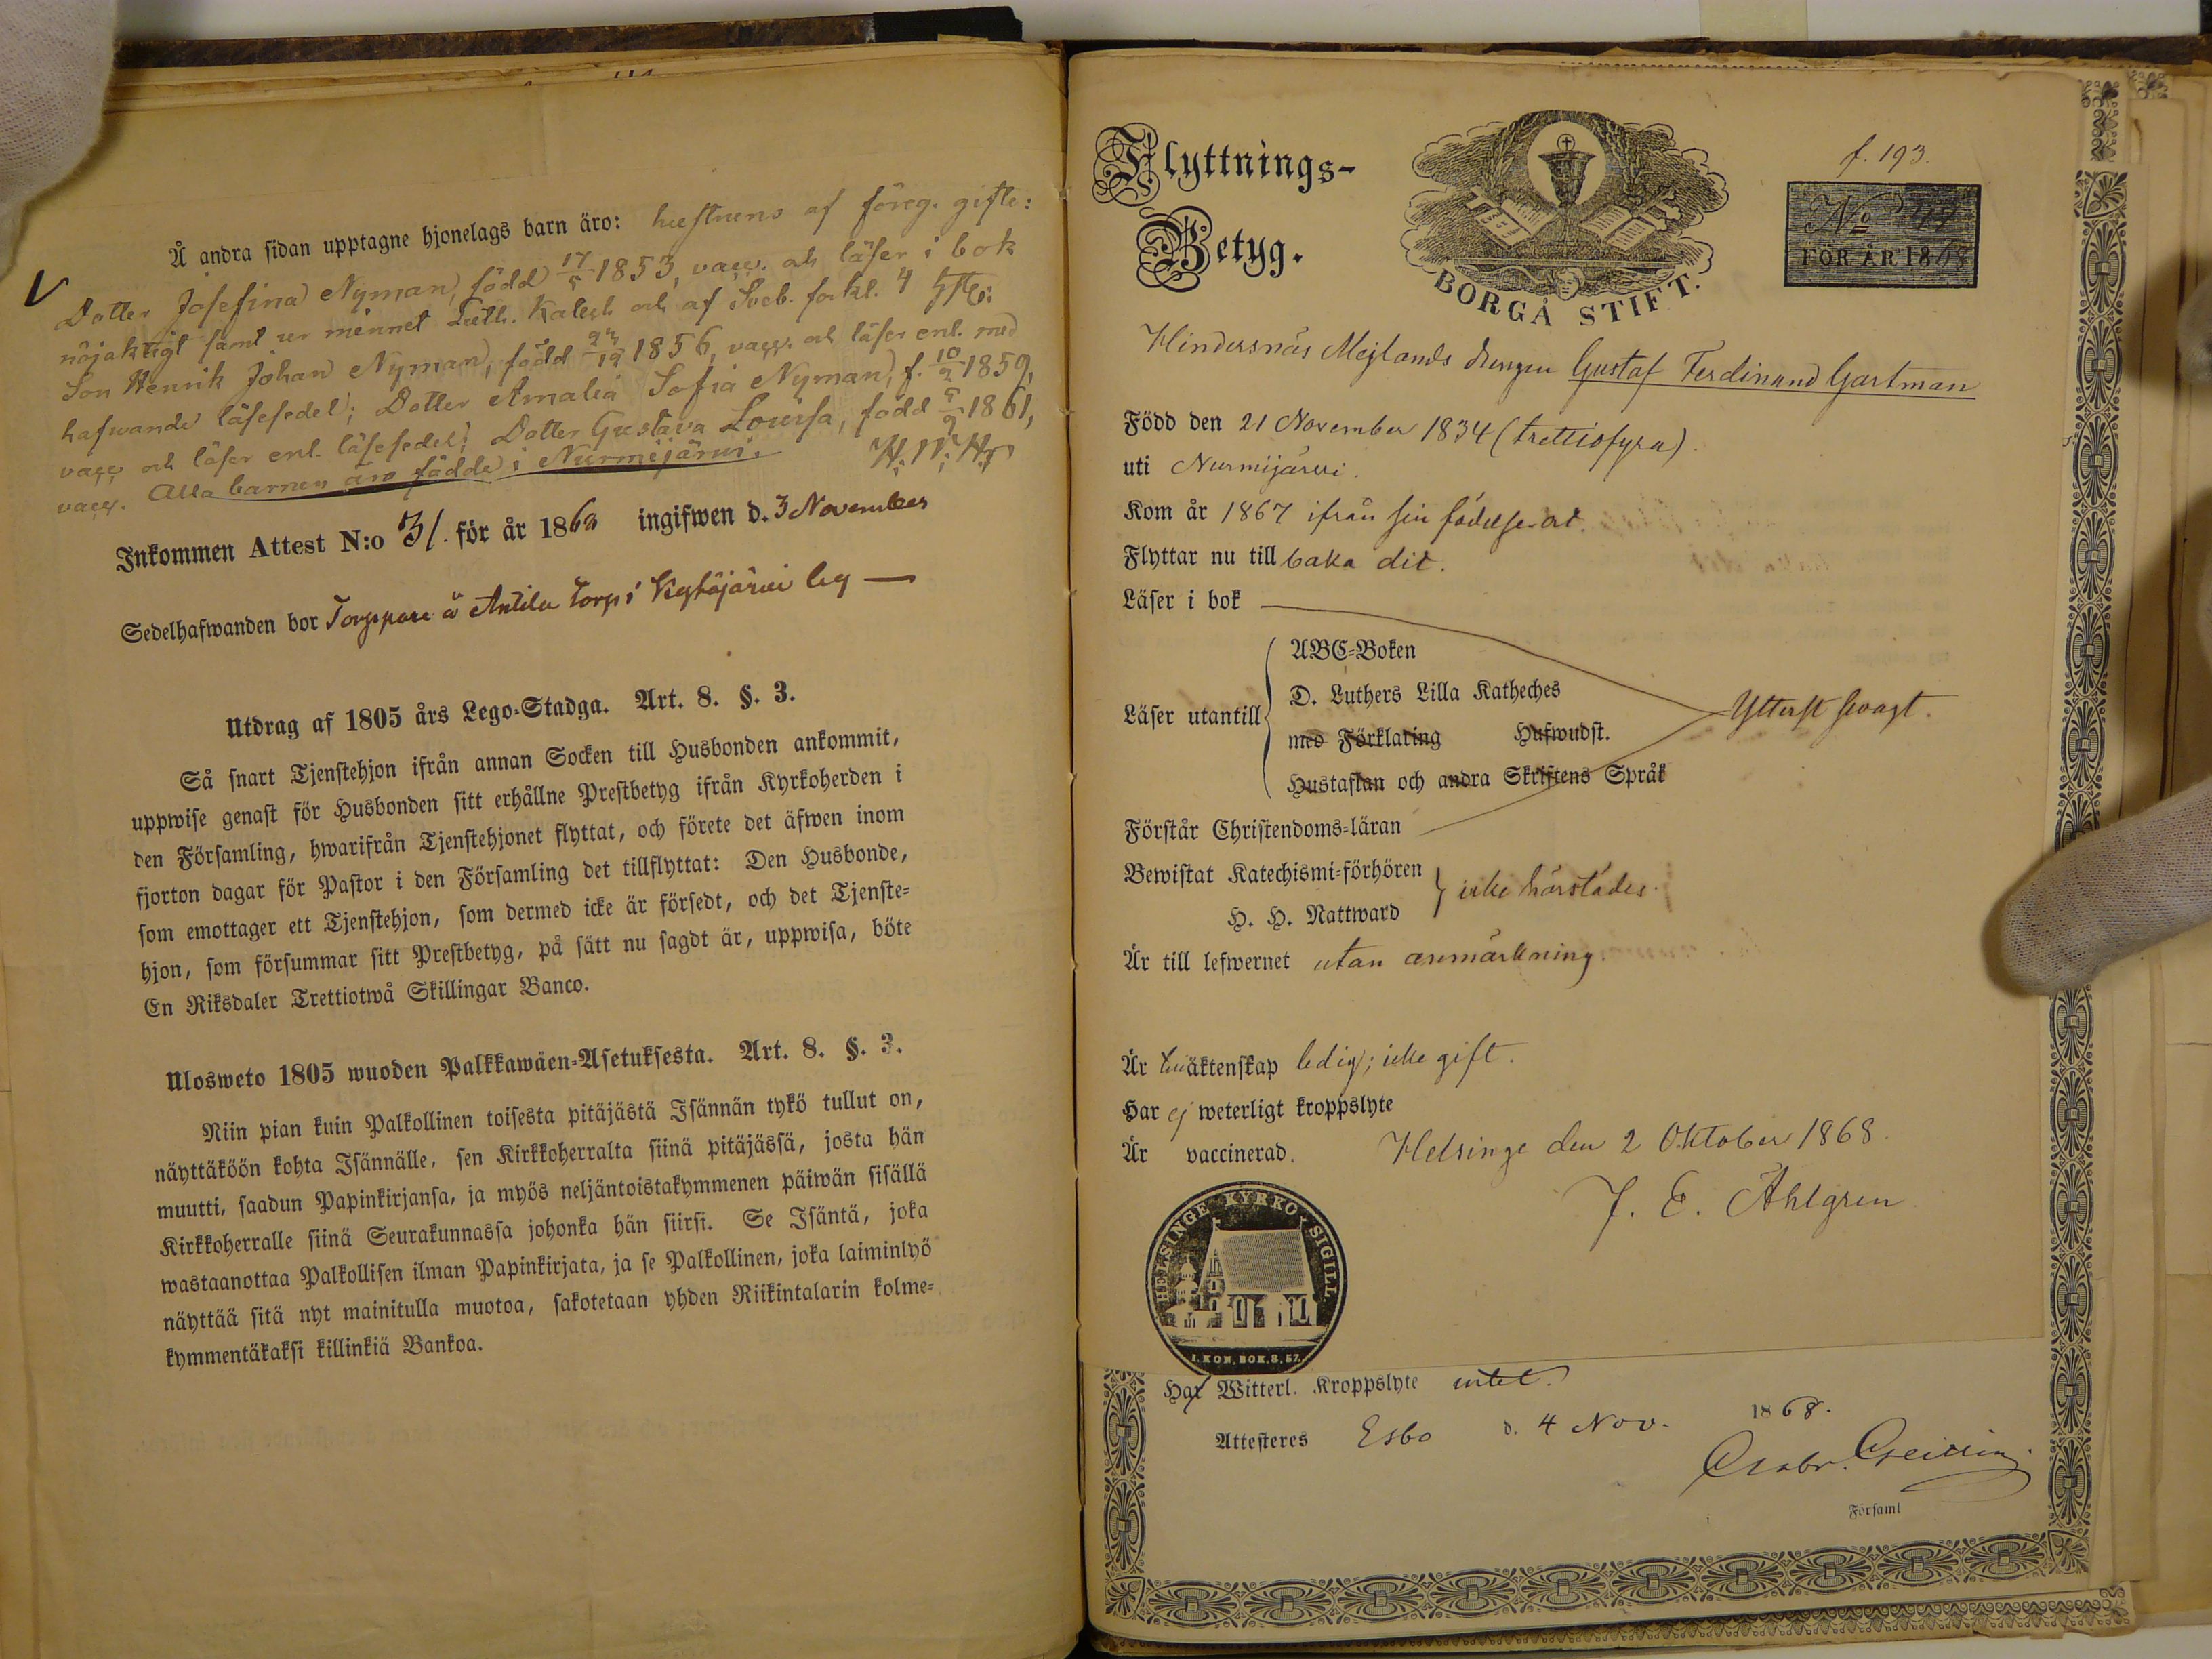 Å andra sidan upptagne hjonelags barn äro: hustruns af föreg. gifte:
Dotter Josefina Nyman, född 17/5 1853, vacc. och läser i bok
nöjaktigt samt ur minnet Luth. Katech och af Sveb. förkl. 4 H.st.;
Son Henrik Johan Nyman, född 24/12 1856, vacc. och läser enl. med
hafwande läsesedel; Dotter Amalia Sofia Nyman, f. 10/2 1859,
vacc. och läser enl. läsesedel; Dotter Gustava Lovisa, född 5/9 1861,
vacc. Alla barnen äro födde i Nurmijärvi.
Inkommen Attest N:o 31. för år 1868 ingifwen d. 3 November
Sedelhafwanden bor Torppare å Antila torp i Kytäjärvi leg —
Utdrag af 1805 års Lego-Stadga. Art. 8. §. 3.
Så snart Tjenstehjon ifrån annan Socken till Husbonden ankommit,
uppwise genast för Husbonden sitt erhållne Prestbetyg ifrån Kyrkoherden i
den Församling, hwarifrån Tjenstehjonet flyttat, och förete det äfwen inom
fjorton dagar för Pastor i den Församling det tillflyttat: Den Husbonde,
som emottager ett Tjenstehjon, som dermed icke är försedt, och det Tjenste-
hjon, som försummar sitt Prestbetyg, på sätt nu sagdt är, uppwisa, böte
En Riksdaler Trettiotwå Skillingar Banco.
Ulosweto 1805 wuoden Palkkawäen-Asetuksesta. Art. 8. §. 3.
Niin pian kuin Palkollinen toisesta pitäjästä Isännän tykö tullut on,
näyttäköön kohta Isännälle, sen Kirkkoherralta siinä pitäjässä, josta hän
muutti, saadun Papinkirjansa, ja myös neljäntoistakymmenen päiwän sisällä
Kirkkoherralle siinä Seurakunnassa johonka hän siirsi. Se Isäntä, joka
wastaanottaa Palkollisen ilman Papinkirjata, ja se Palkollinen, joka laiminlyö
näyttää sitä nyt mainitulla muotoa, sakotetaan yhden Riikintalarin kolme-
kymmentäkaksi killinkiä Bankoa.
Flyttnings-
Betyg.
BORGÅ STIFT.
f. 193.
No 47
FÖR ÅR 1868
Hindersnäs Mejlands drengen Gustaf Ferdinand Gartman
Född den 21 November 1834 (trettiofyra).
uti Nurmijärvi.
Kom år 1867 ifrån sin födelse-ort.
Flyttar nu till baka dit.
Läser i bok
ABC-Boken
D. Luthers Lilla Katheches
Läser utantill
med Förklaring Hufwudst.
Hustaflan och andra Skriftens Språk
Ytterst svagt.
Förstår Christendoms-läran
Bewistat Katechismi-förhören
H. H. Nattward
icke härstädes.
Är till lefwernet utan anmärkning.
Är till äktenskap ledig; icke gift.
Har ej weterligt kroppslyte
Är vaccinerad.
Helsinge den 2 Oktober 1868.
J. E. Åhlgren
HELSINGE KYRKO SIGILL.
1. KON. BOK. 8. 57.
Har Witterl. Kroppslyte intet.
Attesteres Esbo d. 4 Nov. 1868.
Församl